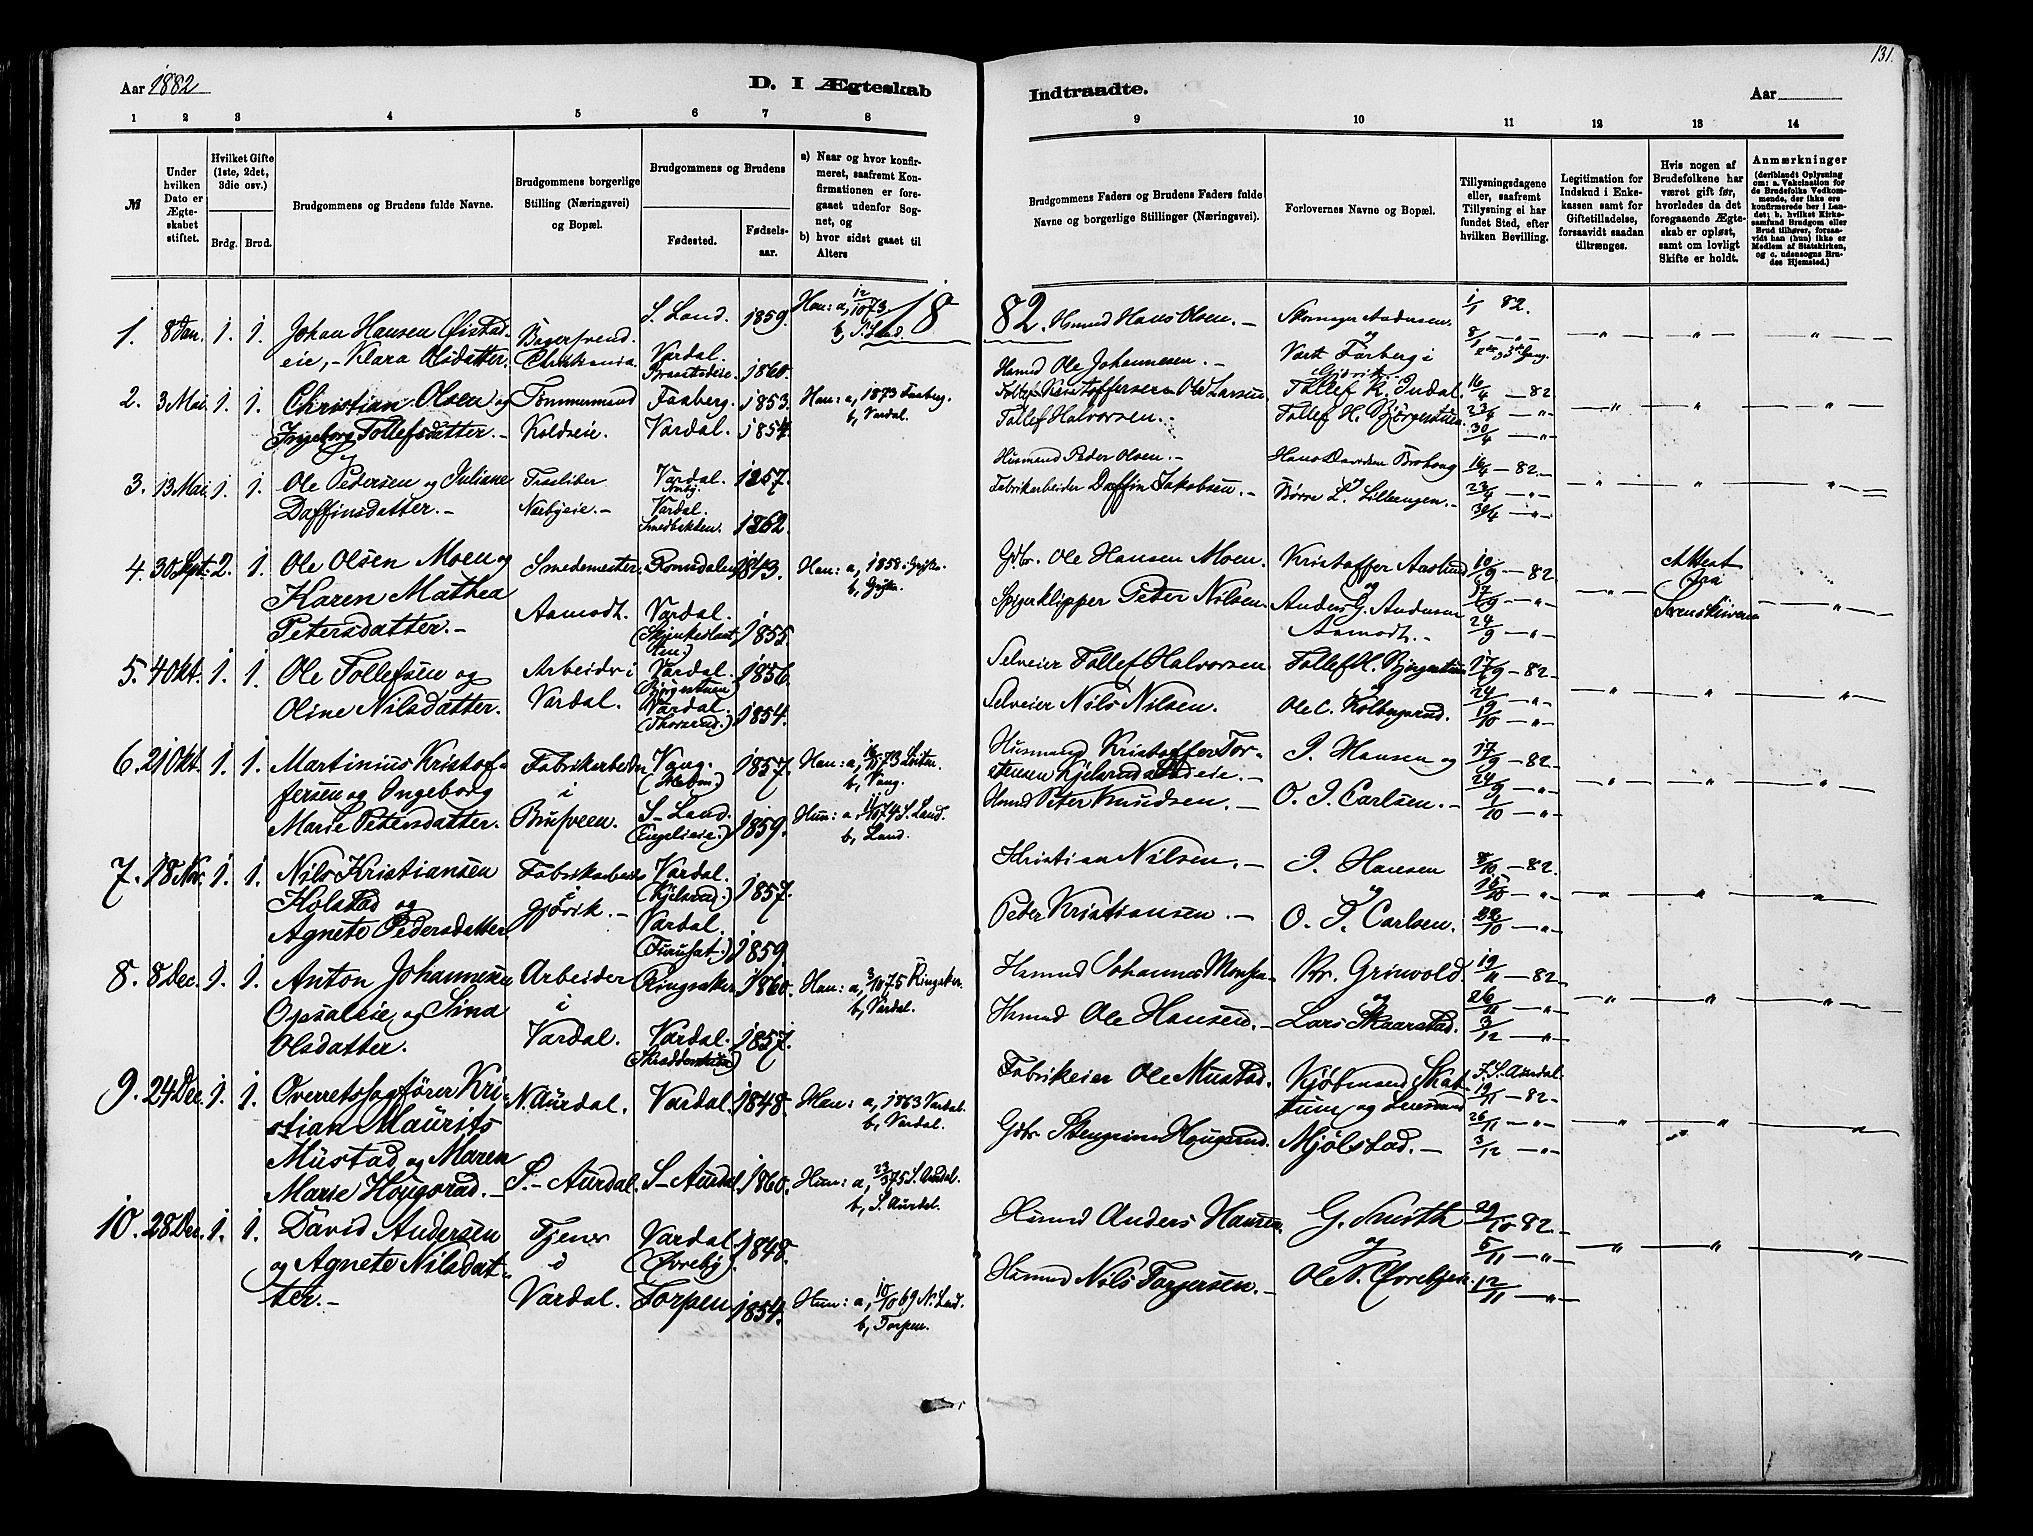 131.
Aar 1882
D. I Ægteskab
Indtraadte.
Aar
1 2 3 4 5 6 7 8
9 10 11 12 13 14
№
Under hvilken Dato er Ægteskabet stiftet.
Hvilket Gifte (1ste, 2det, 3die osv.)
Brdg. Brud.
Brudgommens og Brudens fulde Navne.
Brudgommens borgerlige Stilling (Næringsvei) og Bopæl.
Brudgommens og Brudens
Fødested. Fødselsaar.
a) Naar og hvor konfirmeret, saafremt Konfirmationen er foregaaet udenfor Sognet, og
b) hvor sidst gaaet til Alters
Brudgommens Faders og Brudens Faders fulde Navne og borgerlige Stillinger (Næringsvei).
Forlovernes Navne og Bopæl.
Tillysningsdagene eller, saafremt Tillysning ei har fundet Sted, efter hvilken Bevilling.
Legitimation for Indskud i Enkekassen samt for Giftetilladelse, forsaavidt saadan tiltrænges.
Hvis nogen af Brudefolkene har været gift før, hvorledes da det foregaaende Ægteskab er opløst, samt om lovligt Skifte er holdt.
Anmærkninger (deriblandt Oplysning om: a. Vakcination for de Brudefolks Vedkommende, der ikke ere konfirmerede her i Landet; b. hvilket Kirkesamfund Brudgom eller Brud tilhører, forsaavidt han (hun) ikke er Medlem af Statskirken, og c. udensogns Brudes Hjemsted.)
1882
1. 8 Jan. 1. 1. Johan Hansen Øistadeie, - Klara Olsdatter. Bagersvend. Christiania. S. Land. 1859. Vardal. 1860. Han: a, 12/10 73 b, S. Land. Hsmd Hans Olsen. - Hsmd Ole Johannesen. - Skomager Andersen. og Vært Farberg i Gjøvik. 1/1 82. 8/1 - " -
2. 3 Mai. 1. 1. Christian Olsen og Ingeborg Tollefsdatter. - Tømmermand Koldseie. Faaberg. 1853. Vardal. 1854. Han: a, 1873 Faaberg. b, Vardal. Ole Larsen Tollef Halvorsen. Tollef K. Indal. Tollef H. Bjørgestuen. 16/4 - 82 23/4 - " - 30/4 - " -
3. 13 Mai. 1. 1. Ole Pedersen og Juliane Daffinsdatter. - Træsliber Narbyeie. - Vardal. 1857. Vardal. Smedbakken. 1862. Husmand Peder Olsen. - Fabrikarbeider Daffin Jakobsen. - Børre L. Lillengen. - 16/4 - 82. - 23/4 - " - 30/4 - " -
4. 30 Sept. 2. 1. Ole Olsen Moen og Karen Mathea Petersdatter. - Smedemester. Aamodt. Romsdalen 1843. Vardal. 1855. Han: a, 1858 i Grytten. b, Grytten. Gbr. Ole Hansen Moen. Spigerklipper Peter Nilsen. Kristoffer Aaslund og Anders G. Andersen Aamodt. - 10/9 - 82 17/9 - " - 24/9 - " - Attest fra Sorenskriveren
5. 4 Okt. 1. 1. Ole Tollefsen og Oline Nilsdatter. Arbeider i Vardal. Vardal. (Bjørgestuen) 1856. Vardal. 1854. Selveier Tollef Halvorsen Selveier Nils Nilsen. Tollef H. Bjørgestuen og Ole C. Kolbergsrud. 17/9 - 82. 24/9 - " - 1/10 - " -
6. 21 Okt. 1. 1. Martinius Kristoffersen og Ingeborg Marie Petersdatter. Fabrikarbeider i Brusveen. Vang. (Hedm.) 1857. S. Land. (Engelieie.) 1859. Han: a, 16/11 73 Løiten. b, Vang. Hun: a, 11/10 74 S. Land. b, Land. Husmand Kristoffer Torstensen Kjelsrudeie. - Hsmd Peter Knudsen. - I. Hansen og O. I. Carlsen. - 17/9 - 82. 24/9 - " - 1/10 - " -
7. 18 Nov. 1. 1. Nils Kristiansen Holstad og Agnete Pedersdatter. Fabrikarbeider i Gjøvik. - Vardal. (Kjelsrud.) 1857. Vardal. (Furuset.) 1859. Kristian Nilsen. - Peter Kristiansen. - I. Hansen og O. I. Carlsen. 8/10 - 82. 15/10 - " - 22/10 - " -
8. 8 Dec. 1. 1. Anton Johannesen Opsaleie og Sina Olsdatter. Arbeider i Vardal. Ringsaker 1860. Vardal. 1857. Han: a, 3/10 75 Ringsaker. b, Vardal. Hsmd Johannes Monsen Hsmd Ole Hansen. - Kr. Grinvold. og Lars Skaarstad. 19/11 - 82. 26/11 - " - 3/12 - " -
9. 24 Dec. 1. 1. Overretssagfører Kristian Maurits Mustad og Maren Marie Hougsrud. - N. Aurdal. S. - Aurdal. Vardal. 1848. S. Aurdal 1860. Han: a, 1863 Vardal. b, Vardal. Hun: a, 23/3 75 S. Aurdal. b, S. Aurdal. Fabrikeier Ole Mustad. Gbr. Stengrim Hougsrud. Kjøbmand Skattum og Lensmand Mjølstad. - I S. Aurdal. 19/11 - 82 - 26/11 - " - 3/12 - " -
10. 28 Dec. 1. 1. David Andersen og Agnete Nilsdatter. - Tjener i Vardal. Vardal (Øvreby). 1848. Torpen 1854. Hun: a, 10/10 69 N. Land. b, Torpen. Husmd Anders Hansen. Husmd Nils Torgersen. - G. Smith og Ole N. Øvrebyeie. 29/10 - 82. 5/11 - " - 12/11 - " -